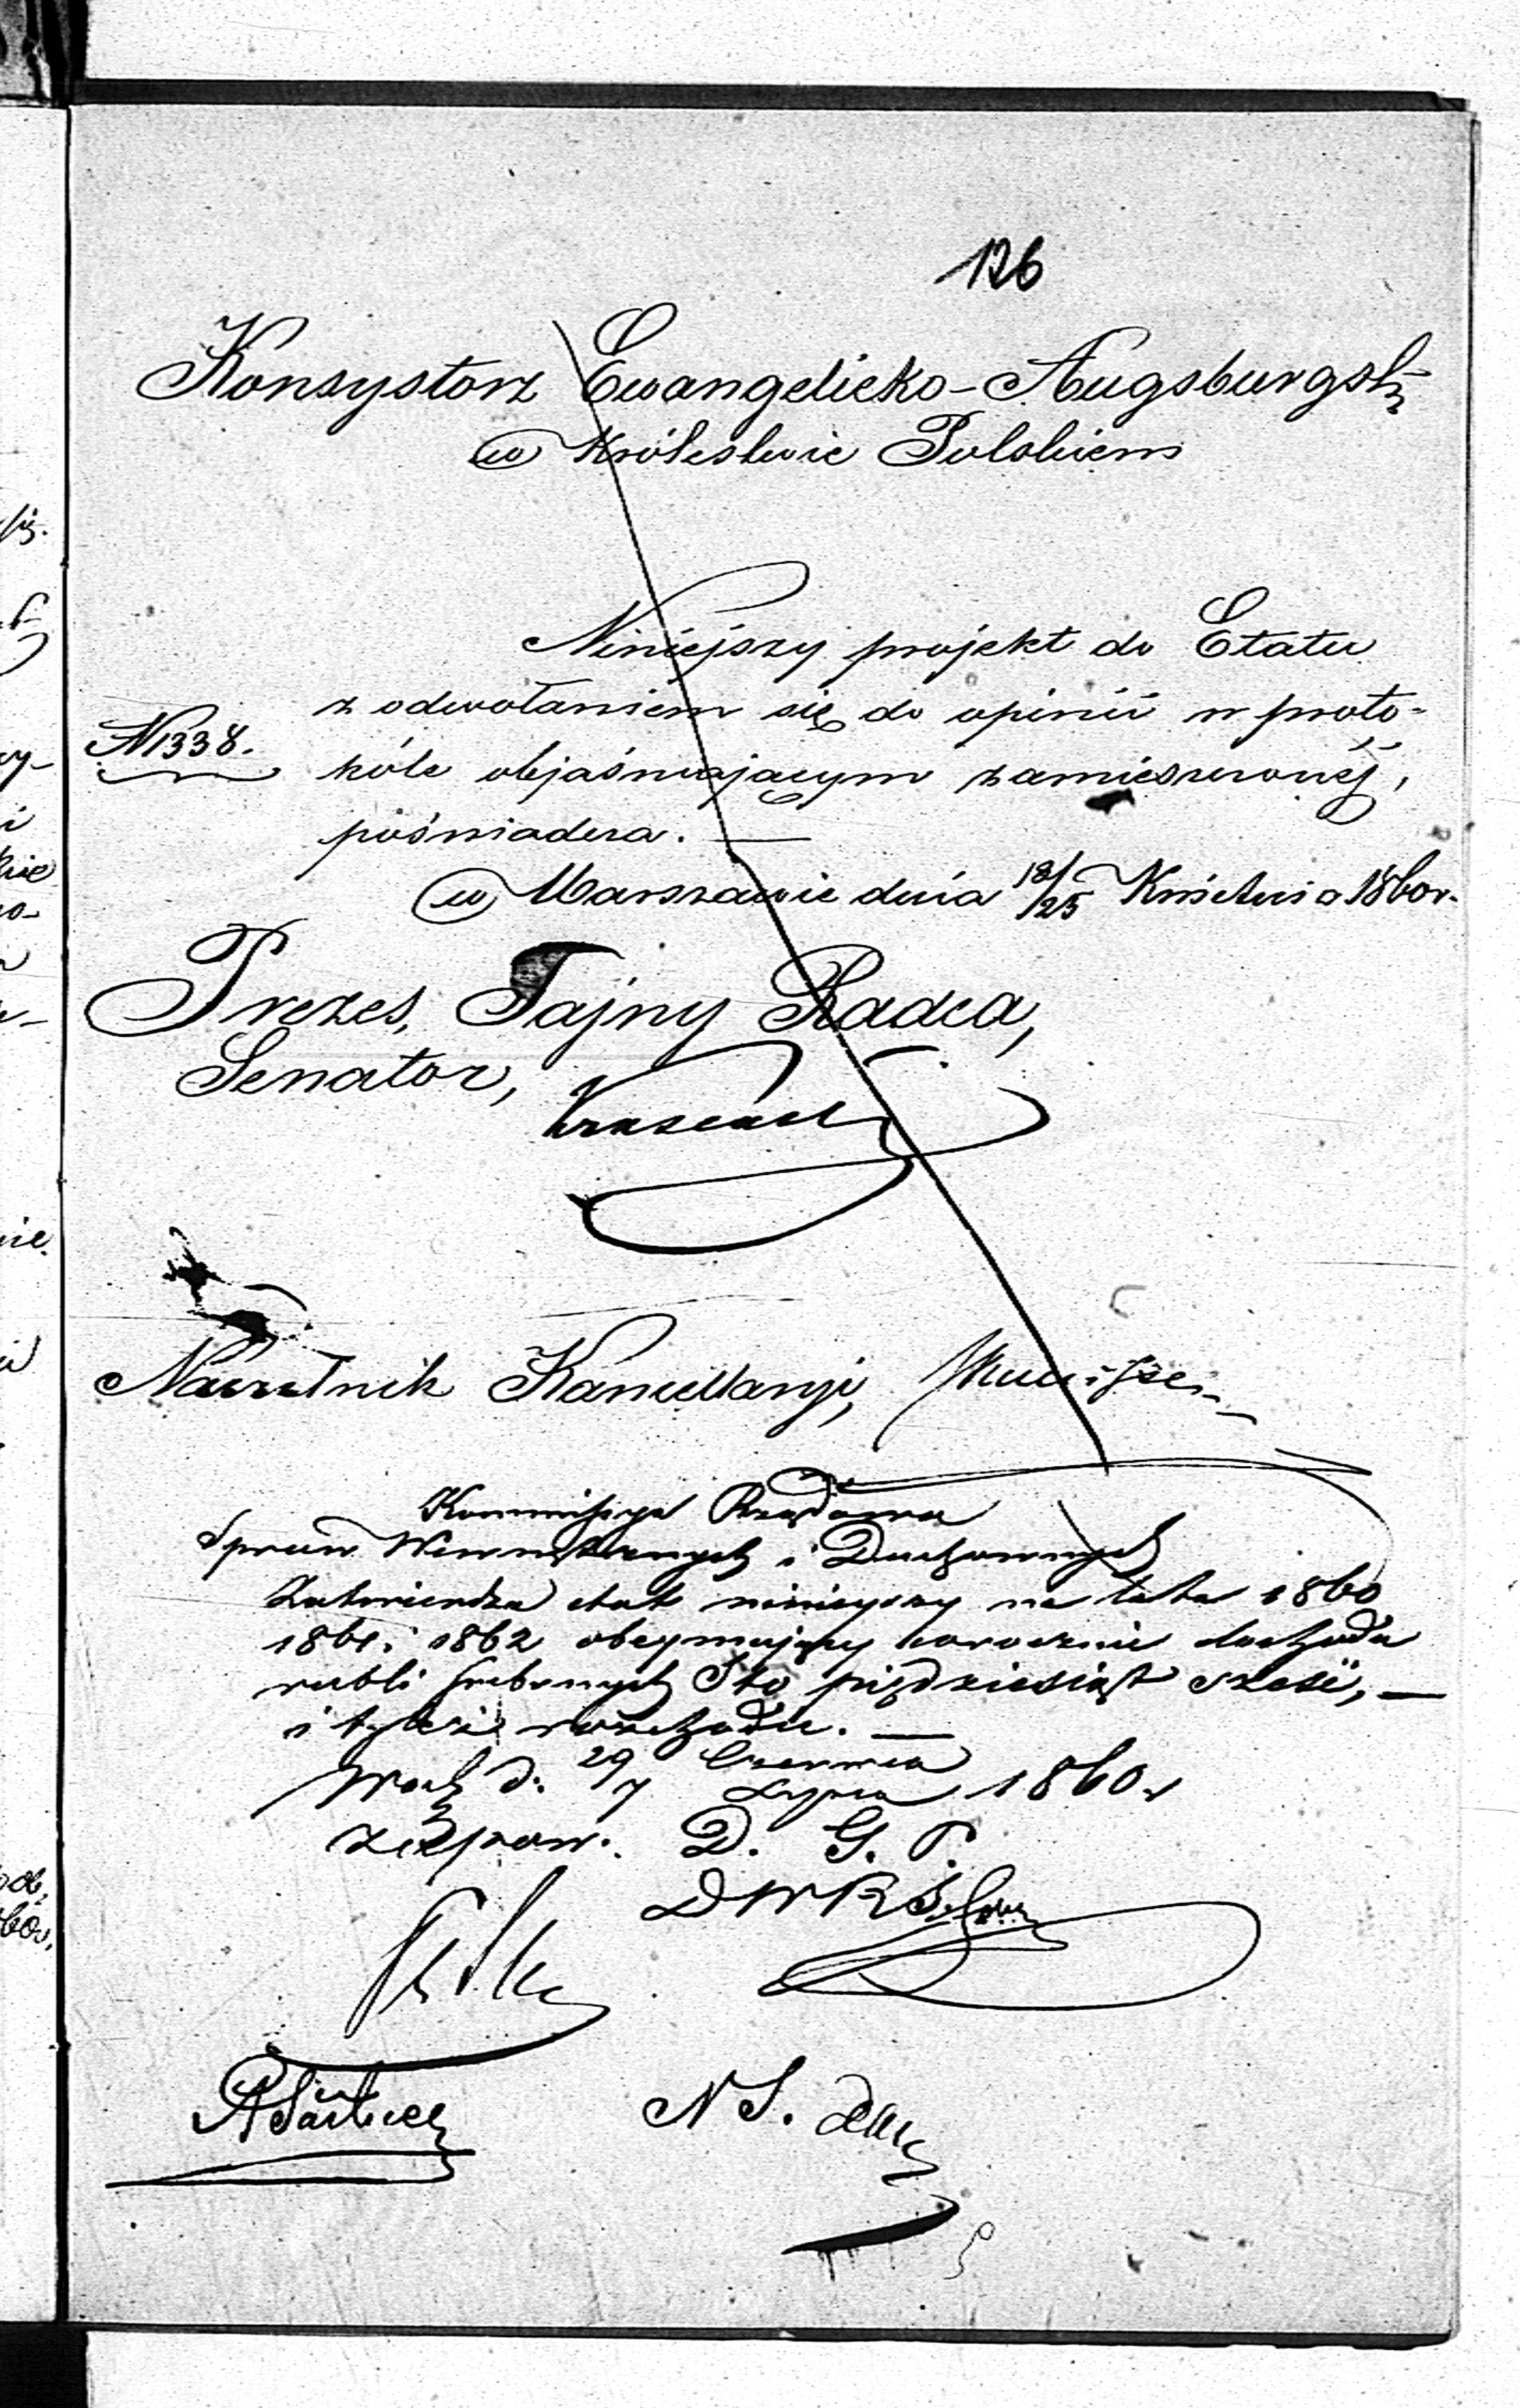 126
Konsystorz Ewangelicko-Augsburgski
w Królestwie Polskiem
Niniejszy projekt do Etatu
z odwołaniem się do opinii w proto-
N 1338.
kóle objaśniającym zamieszczonéj,
poświadcza. —
w Warszawie dnia 13/25 Kwietnia 1860 r.
Prezes, Tajny Radca,
Senator,
Naczelnik Kancellaryi,
Kommissya Rządowa
Spraw Wewnętrznych i Duchownych
Zatwierdza etat niniejszy na lata 1860
1861 i 1862 obejmujący corocznie dochodu
rubli srebrnych Sto pięćdziesiąt sześć, —
i tyleż rozchodu. —
d. 29 Czerwca
7 Lipca 1860 r
D. G. P.
N S.